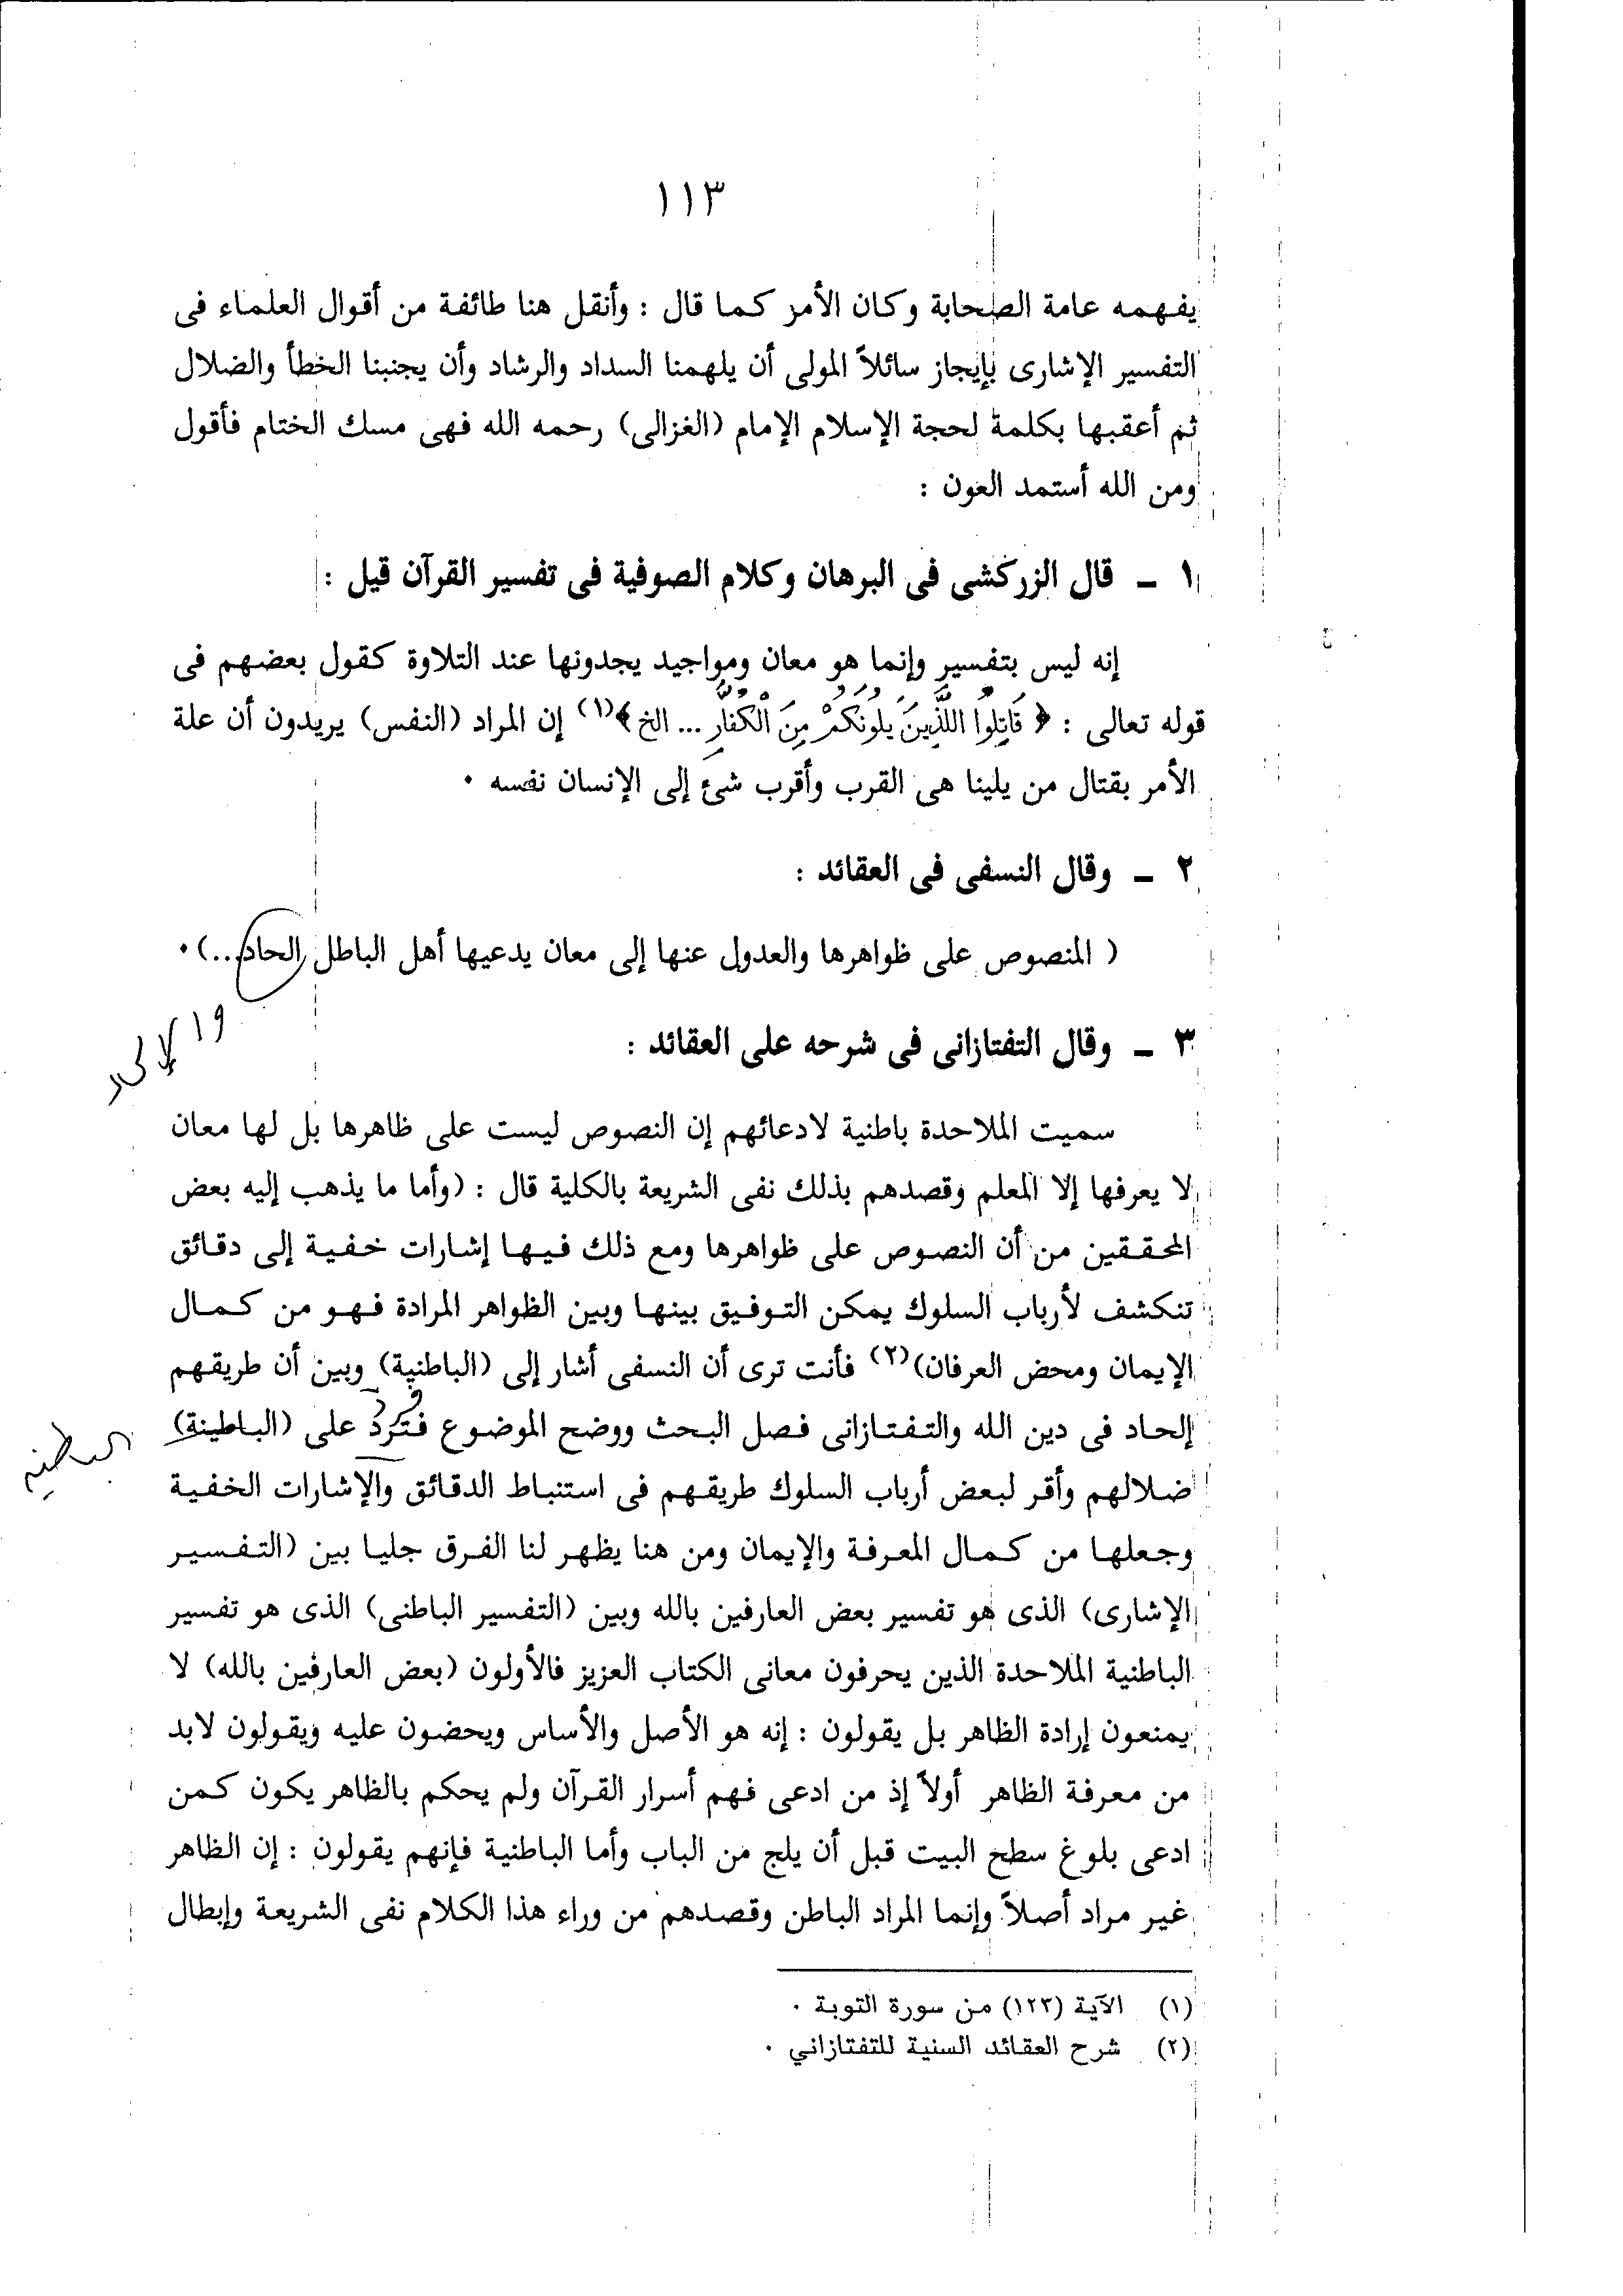 ١١٣
يفهمه عامة الصحابة وكان الأمر كما قال : وأنقل هنا طائفة من أقوال العلماء فى
التفسير الإشارى بإيجاز سائلاً المولى أن يلهمنا السداد والرشاد وأن يجنبنا الخطأ والضلال
ثم أعقبها بكلمة لحجة الإسلام الإمام (الغزالى) رحمه الله فهى مسك الختام فأقول
ومن الله أستمد العون :
١ - قال الزركشى فى البرهان وكلام الصوفية فى تفسير القرآن قيل :
إنه ليس بتفسير وإنما هو معان ومواجيد يجدونها عند التلاوة كقول بعضهم فى
قوله تعالى : ﴿ قَاتِلُوا الَّذِينَ يَلُونَكُمْ مِنَ الْكُفَّارِ ... الخ ﴾(١) إن المراد (النفس) يريدون أن علة
الأمر بقتال من يلينا هى القرب وأقرب شئ إلى الإنسان نفسه .
٢ - وقال النسفى فى العقائد :
( المنصوص على ظواهرها والعدول عنها إلى معان يدعيها أهل الباطل الحاد...) .
٣ - وقال التفتازانى فى شرحه على العقائد :
سميت الملاحدة باطنية لادعائهم إن النصوص ليست على ظاهرها بل لها معان
لا يعرفها إلا المعلم وقصدهم بذلك نفى الشريعة بالكلية قال : (وأما ما يذهب إليه بعض
المحققين من أن النصوص على ظواهرها ومع ذلك فيها إشارات خفية إلى دقائق
تنكشف لأرباب السلوك يمكن التوفيق بينها وبين الظواهر المرادة فهو من كمال
الإيمان ومحض العرفان)(٢) فأنت ترى أن النسفى أشار إلى (الباطنية) وبين أن طريقهم
إلحاد فى دين الله والتفتازانى فصل البحث ووضح الموضوع فترد على (الباطينة)
الباطنية
ضلالهم وأقر لبعض أرباب السلوك طريقهم فى استنباط الدقائق والإشارات الخفية
وجعلها من كمال المعرفة والإيمان ومن هنا يظهر لنا الفرق جليا بين (التفسير
الإشارى) الذى هو تفسير بعض العارفين بالله وبين (التفسير الباطنى) الذى هو تفسير
الباطنية الملاحدة الذين يحرفون معانى الكتاب العزيز فالأولون (بعض العارفين بالله) لا
يمنعون إرادة الظاهر بل يقولون : إنه هو الأصل والأساس ويحضون عليه ويقولون لابد
من معرفة الظاهر أولاً إذ من ادعى فهم أسرار القرآن ولم يحكم بالظاهر يكون كمن
ادعى بلوغ سطح البيت قبل أن يلج من الباب وأما الباطنية فإنهم يقولون : إن الظاهر
غير مراد أصلاً وإنما المراد الباطن وقصدهم من وراء هذا الكلام نفى الشريعة وإبطال
(١) الآية (١٢٣) من سورة التوبة .
(٢) شرح العقائد السنية للتفتازاني .